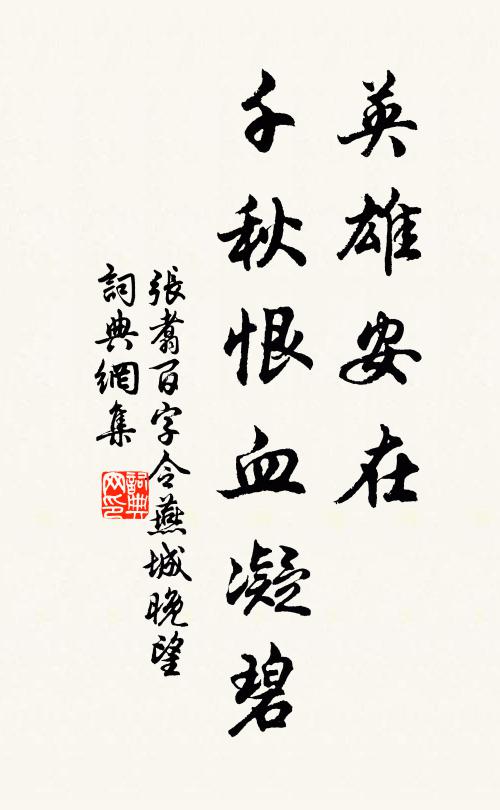 英雄安在
千秋恨血凝碧
張翥百字令蕪城晚望
詞典網集
詞典网印